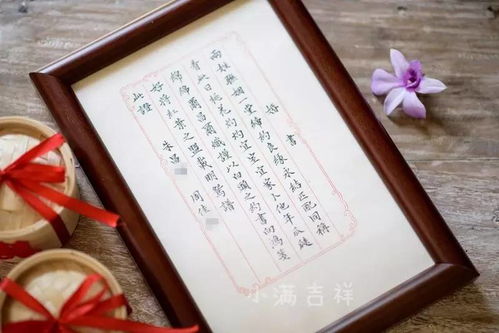 婚書
兩姓聯姻一堂締約良緣永結匹配同稱
看此日桃花灼灼宜室宜家卜他年瓜瓞
綿綿爾昌爾熾謹以白頭之約書向鴻箋
好將紅葉之盟載明鴛譜
此證
朱昌
周佳
小满吉祥